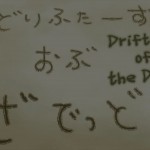 どりふたーず
おぶ
でっど
Drift
of
the D